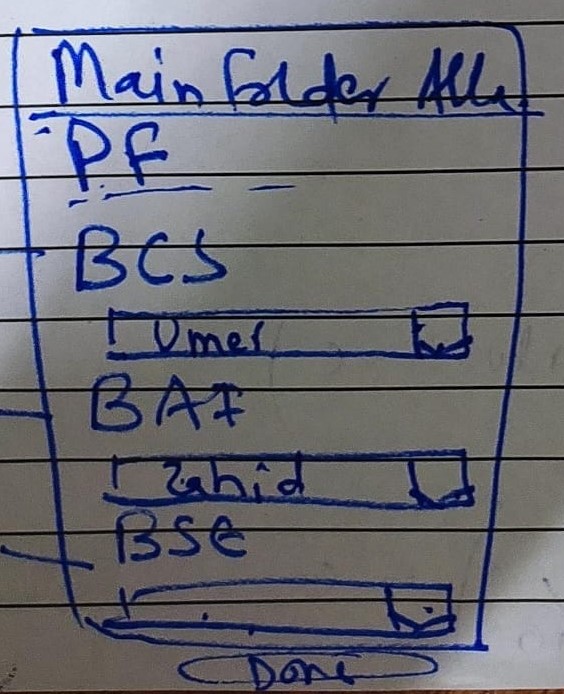 Main folder All
PF
BCS
Umer
BAF
Zahid
BSE
Done